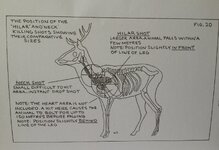 THE POSITION OF THE
'HILAR' AND 'NECK'
KILLING SHOTS SHOWING
THEIR COMPARATIVE
SIZES
FIG. 20
HILAR SHOT
LARGER AREA. ANIMAL FALLS WITHIN A
FEW METERS
NOTE: POSITION SLIGHTLY IN FRONT
OF LINE OF LEG
NECK SHOT
SMALL DIFFICULT TO HIT
AREA. INSTANT DROP SHOT
NOTE: THE HEART AREA IS NOT
INCLUDED. A HIT HERE CAUSES THE
ANIMAL TO BOLT FOR UPTO
150 METERS BEFORE FALLING
NOTE: POSITION SLIGHTLY BEHIND
LINE OF THE LEG